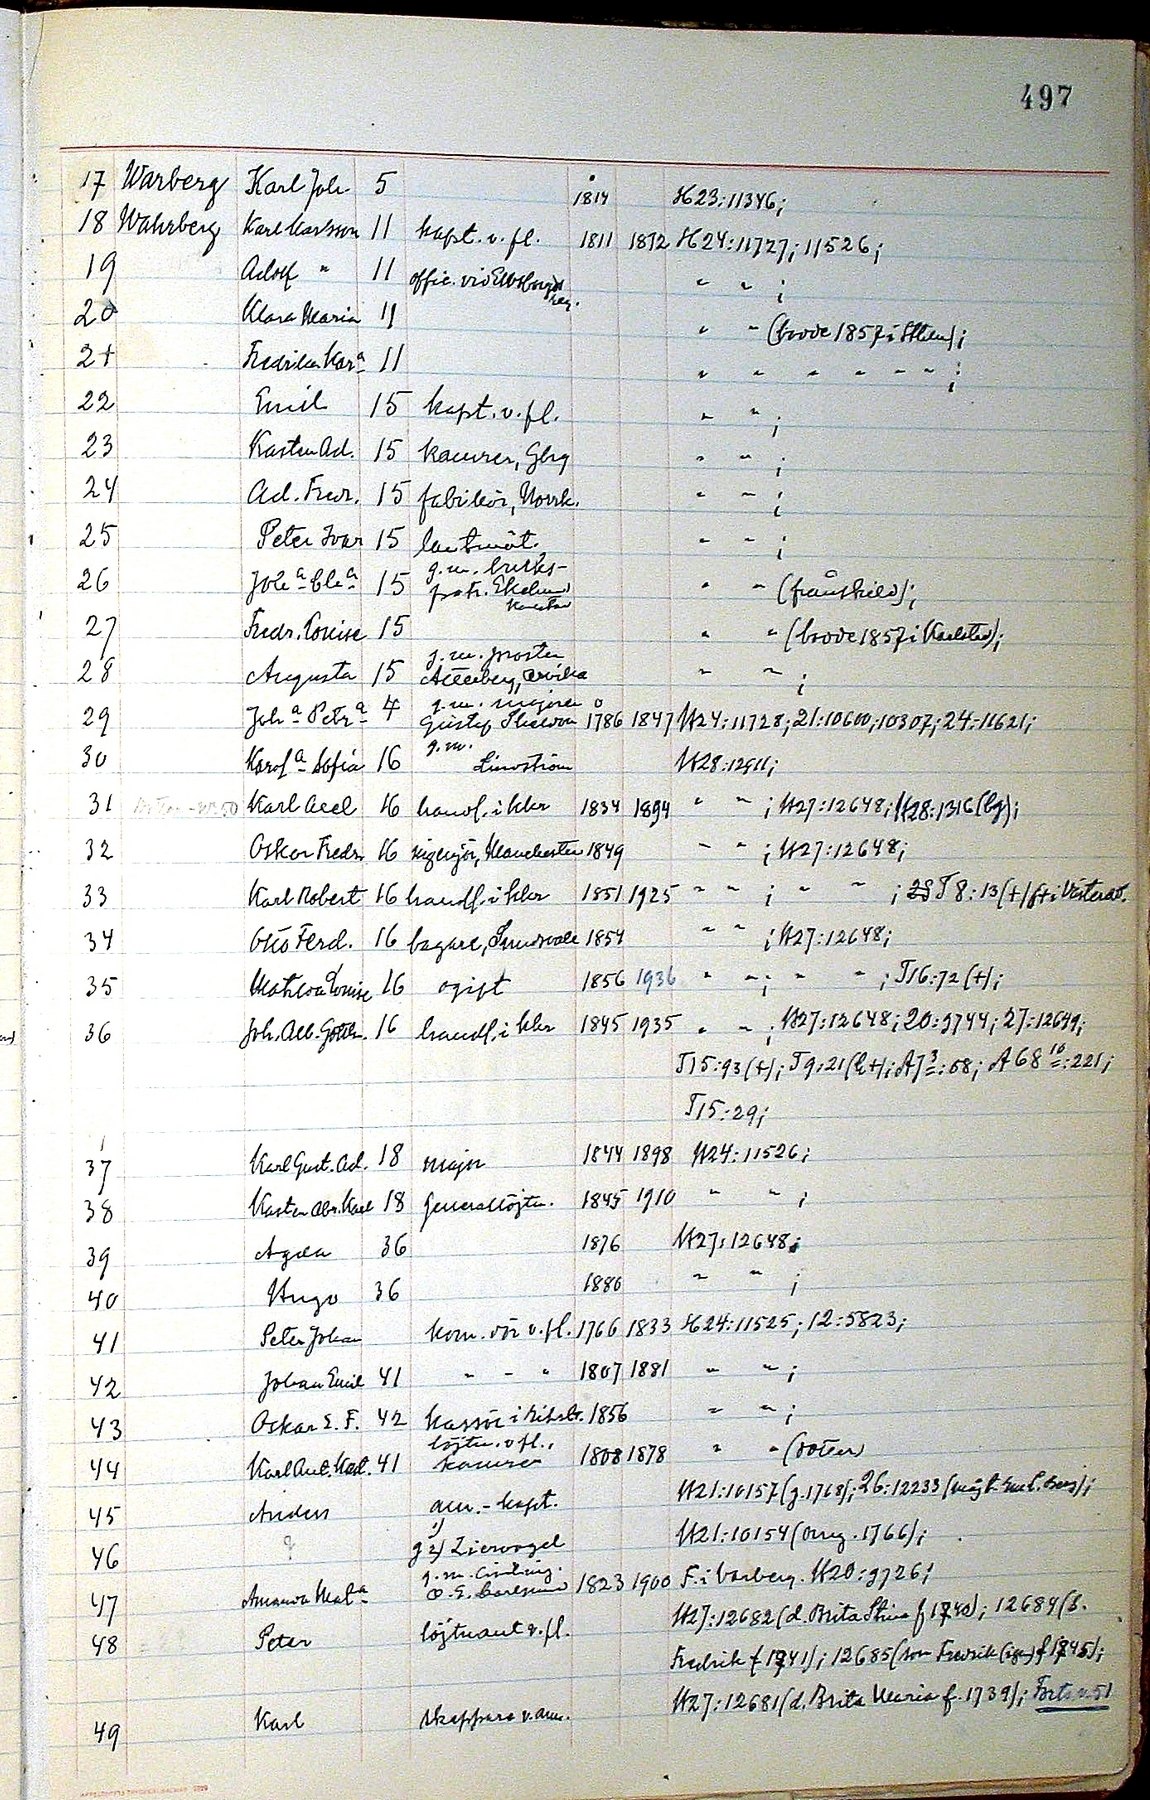 497
17 Warberg Karl Joh 5 1814 H23:11346;
18 Wahrberg Karl Karlsson 11 kapt. v. fl. 1811 1872 H24:11727; 11526;
19 Adolf " 11 offic. vid Elfsborgs reg. " " ;
20 Klara Maria 11 " " (bodde 1857 i Sthlm);
21 Fredrika Kar:a 11 " " " " " " ;
22 Emil 15 kapt. v. fl. " " ;
23 Karsten Ad. 15 kamrer, Gbg " " ;
24 Ad. Fredr. 15 fabrikör, Norrk. " " ;
25 Peter Ivar 15 lantmät. " " ;
26 Joh:a 15 g.m. bruks-
patr. Ekelund " " (frånskild);
27 Fredr. Louise 15 " " (bodde 1857 i Karlstad);
28 Augusta 15 g.m. prosten
Arvika " " ;
29 Joh:a Petr:a 4 g.m. majoren
Gustaf 1786 1847 H24:11728; 21:10600; 10307; 24:11621;
30 Karol:a Sofia 16 g.m.
Lindström H28:12911;
31 Karl Axel 16 handl. i Kkr 1834 1894 " " ; H27:12648; H28:1316 (bg);
32 Oskar Fredr. 16 ingenjör, Manchester 1849 " " ; H27:12648;
33 Karl Robert 16 handl. i Kkr 1851 1925 " " ; " " ; T8:13 (+) i Västerås.
34 Otto Ferd. 16 bagare, Sundsvall 1854 " " ; H27:12648;
35 Matilda Louise 16 ogift 1856 1936 " " ; " " ; T16:72 (+);
36 Joh. Alb. Gotth. 16 handl. i Kkr 1845 1935 " " ; H27:12648; 20:9744; 27:12649;
T15:93 (+); T9:21 (h+); A7 3:68; A68 10:221;
T15:29;
37 Karl Gust. Ad. 18 major 1844 1898 H24:11526;
38 Karsten Abr. Karl 18 Generallöjtn. 1845 1910 " " ;
39 Agda 36 1876 H27:12648;
40 Hugo 36 1880 " " ;
41 Peter Johan kom. v. fl. 1766 1833 H24:11525; 12:5823;
42 Johan Emil 41 " " " 1807 1881 " " ;
43 Oskar E. F. 42 kassör i 1856 " " ;
44 Karl Aug. 41 löjtn. v. fl.,
kamrer 1808 1878 " " (döttrar)
45 Anders am.-kapt. H21:10157 (g. 1768); 26:12233
46 ? g 2) Ziervogel H21:10154 (omg. 1766);
47 Amanda Mat:a g.m. civiling.
O. E. Carlsund 1823 1900 F. i Varberg. H20:9726;
48 Peter löjtnant v. fl. H27:12682 (d. Brita Stina f 1740); 12684 (s.
Fredrik f 1741); 12685 (son Fredrik (igen) f 1745);
49 Karl skeppare v. am. H27:12681 (d. Brita Maria f. 1739); Forts n:51